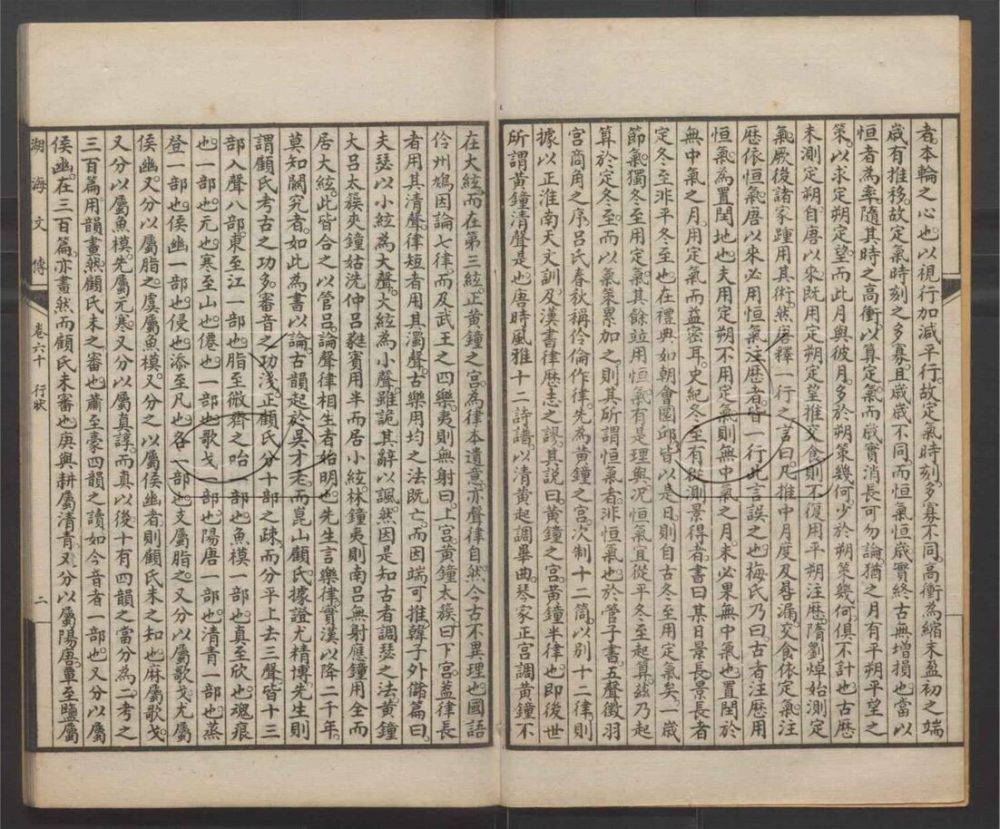 者本輪之心也以視行加減平行故定氣時刻多寡不同高衝為縮末盈初之端
歲有推移故定氣時刻之多寡且歲歲不同而恒氣恒歲實終古無增損也當以
恒者為率隨其時之高衝以算定氣而歲實消長可勿論猶之月有平朔平望之
策以求定朔定望而此月與彼月多於朔策幾何少於朔策幾何俱不計也古歷
未測定朔自唐以來既用定朔定望推交食則不復用平朔注歷隋劉焯始測定
氣厥後諸家踵用其術然唐釋一行之言曰凡推中月度及晷漏交食依定氣注
歷依恒氣唐以來必用恒氣注歷者皆一行此言誤之也梅氏乃曰古者注歷用
恒氣為置閏地也夫用定朔不用定氣則無中氣之月未必果無中氣也置閏於
無中氣之月用定氣而益密耳史紀冬至有從測景得者書曰某日景長景長者
定冬至非平冬至也在禮典如朝會圜邱皆以是日則自古冬至用定氣矣一歲
節氣獨冬至用定氣其餘竝用恒氣有是理與況恒氣宜從平冬至起算茲乃起
算於定冬至而以氣策累加之則其所謂恒氣者非恒氣也於管子書五聲徵羽
宮商角之序呂氏春秋稱伶倫作律先為黃鐘之宮次制十二筒以别十二律則
據以正淮南天文訓及漢書律歷志之謬其說曰黃鐘之宮黃鐘半律也即後世
所謂黃鐘清聲是也唐時風雅十二詩譜以清黃起調畢曲琴家正宮調黃鐘不
在大絃而在第三絃正黃鐘之宮為律本遺意亦聲律自然今古不異理也國語
伶州鳩因論七律而及武王之四樂夷則無射曰上宮黃鐘太蔟曰下宮蓋律長
者用其清聲律短者用其濁聲古樂用均之法既亡而因端可推韓子外儲篇曰
夫瑟以小絃為大聲大絃為小聲雖詭其辭以諷然因是知古者調瑟之法黃鐘
大呂太蔟夾鐘姑洗仲呂蕤賓用半而居小絃林鐘夷則南呂無射應鐘用全而
居大絃此皆合之以管呂論聲律相生者始明也先生言樂律實漢以降二千年
莫知闕究者如此為書以論古韻起於吳才老而崑山顧氏據證尤精博先生則
謂顧氏考古之功多審音之功淺正顧氏分十部之疎而分平上去三聲皆十三
部入聲八部東至江一部也脂至微齊之咍一部也魚模一部也真至欣也魂痕
也一部也元也寒至山也僊也一部也歌戈一部也陽唐一部也清青一部也蒸
登一部也侯幽一部也侵也添至凡也各一部也支屬脂之又分以屬歌戈尤屬
侯幽又分以屬脂之虞屬魚模又分之以屬侯幽者則顧氏未之知也麻屬歌戈
又分以屬魚模先屬元寒又分以屬真諄而真以後十有四韻之當分為二考之
三百篇用韻畫然顧氏未之審也蕭至豪四韻之讀如今音者一部也又分以屬
侯幽在三百篇亦畫然而顧氏未審也庚與耕屬清青又分以屬陽唐覃至鹽屬
湖海文傳 卷六十 行狀 二